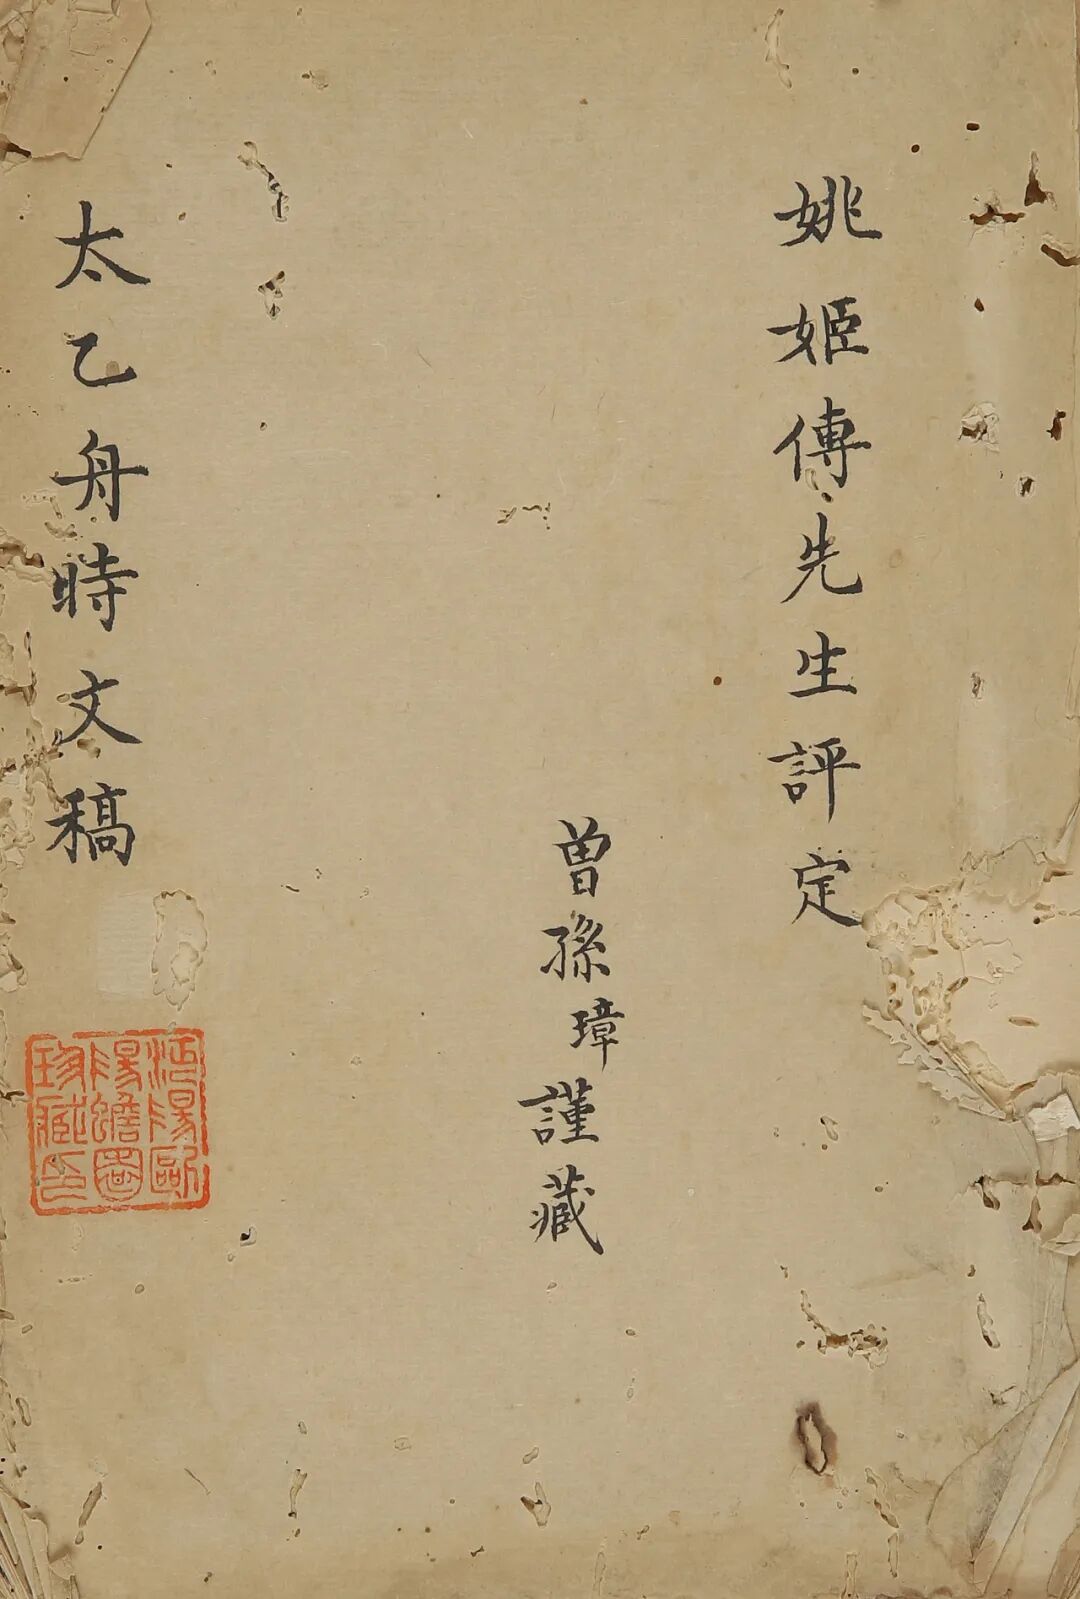 姚姬傳先生評定
曾孫璋謹藏
太乙舟時文稿